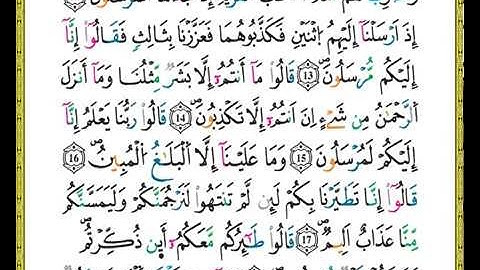 إِذَ اَرْسَلْنَا إِلَيْهِمُ اُثْنَيْنِ فَكَذَّبُوهُمَا فَعَزَّزْنَا بِثَالِثٍ فَقَالُوٓاْ إِنَّآ
إِلَيْكُم مُّرْسَلُونَۖ 13 قَالُواْ مَآ أَنتُمُۥٓ إِلَّا بَشَرٌ مِّثْلُنَا وَمَآ أَنزَلَ
اَ۬لرَّحْمَٰنُ مِن شَےْءٍ اِنَ اَنتُمُۥٓ إِلَّا تَكْذِبُونَۖ 14 قَالُواْ رَبُّنَا يَعْلَمُ إِنَّآ
إِلَيْكُمْ لَمُرْسَلُونَۖ 15 وَمَا عَلَيْنَآ إِلَّا اَ۬لْبَلَٰغُ اُ۬لْمُبِينُۖ 16
قَالُوٓاْ إِنَّا تَطَيَّرْنَا بِكُمْ لَئِن لَّمْ تَنتَهُواْ لَنَرْجُمَنَّكُمْ وَلَيَمَسَّنَّكُم
مِّنَّا عَذَابٌ اَلِيمٌۖ 17 قَالُواْ طَٰٓئِرُكُم مَّعَكُمُۥٓ أَئِن ذُكِّرْتُمۖ